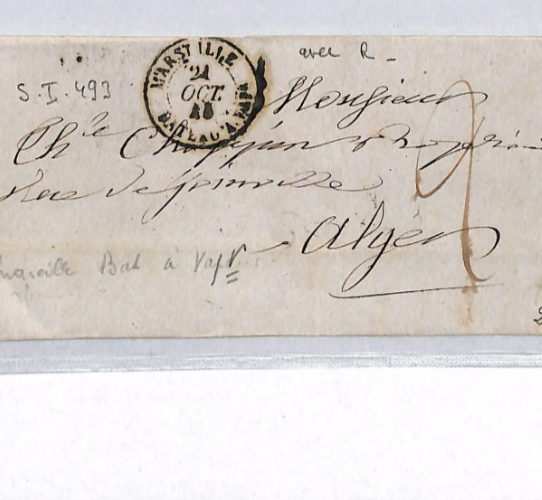 avec R -
S.I. 493
MARSEILLE
21
OCT.
48
BATEAU-A-VAP
Monsieur
Ch le
Rue de Joinville
Alger
Marseille Bat à Vapr